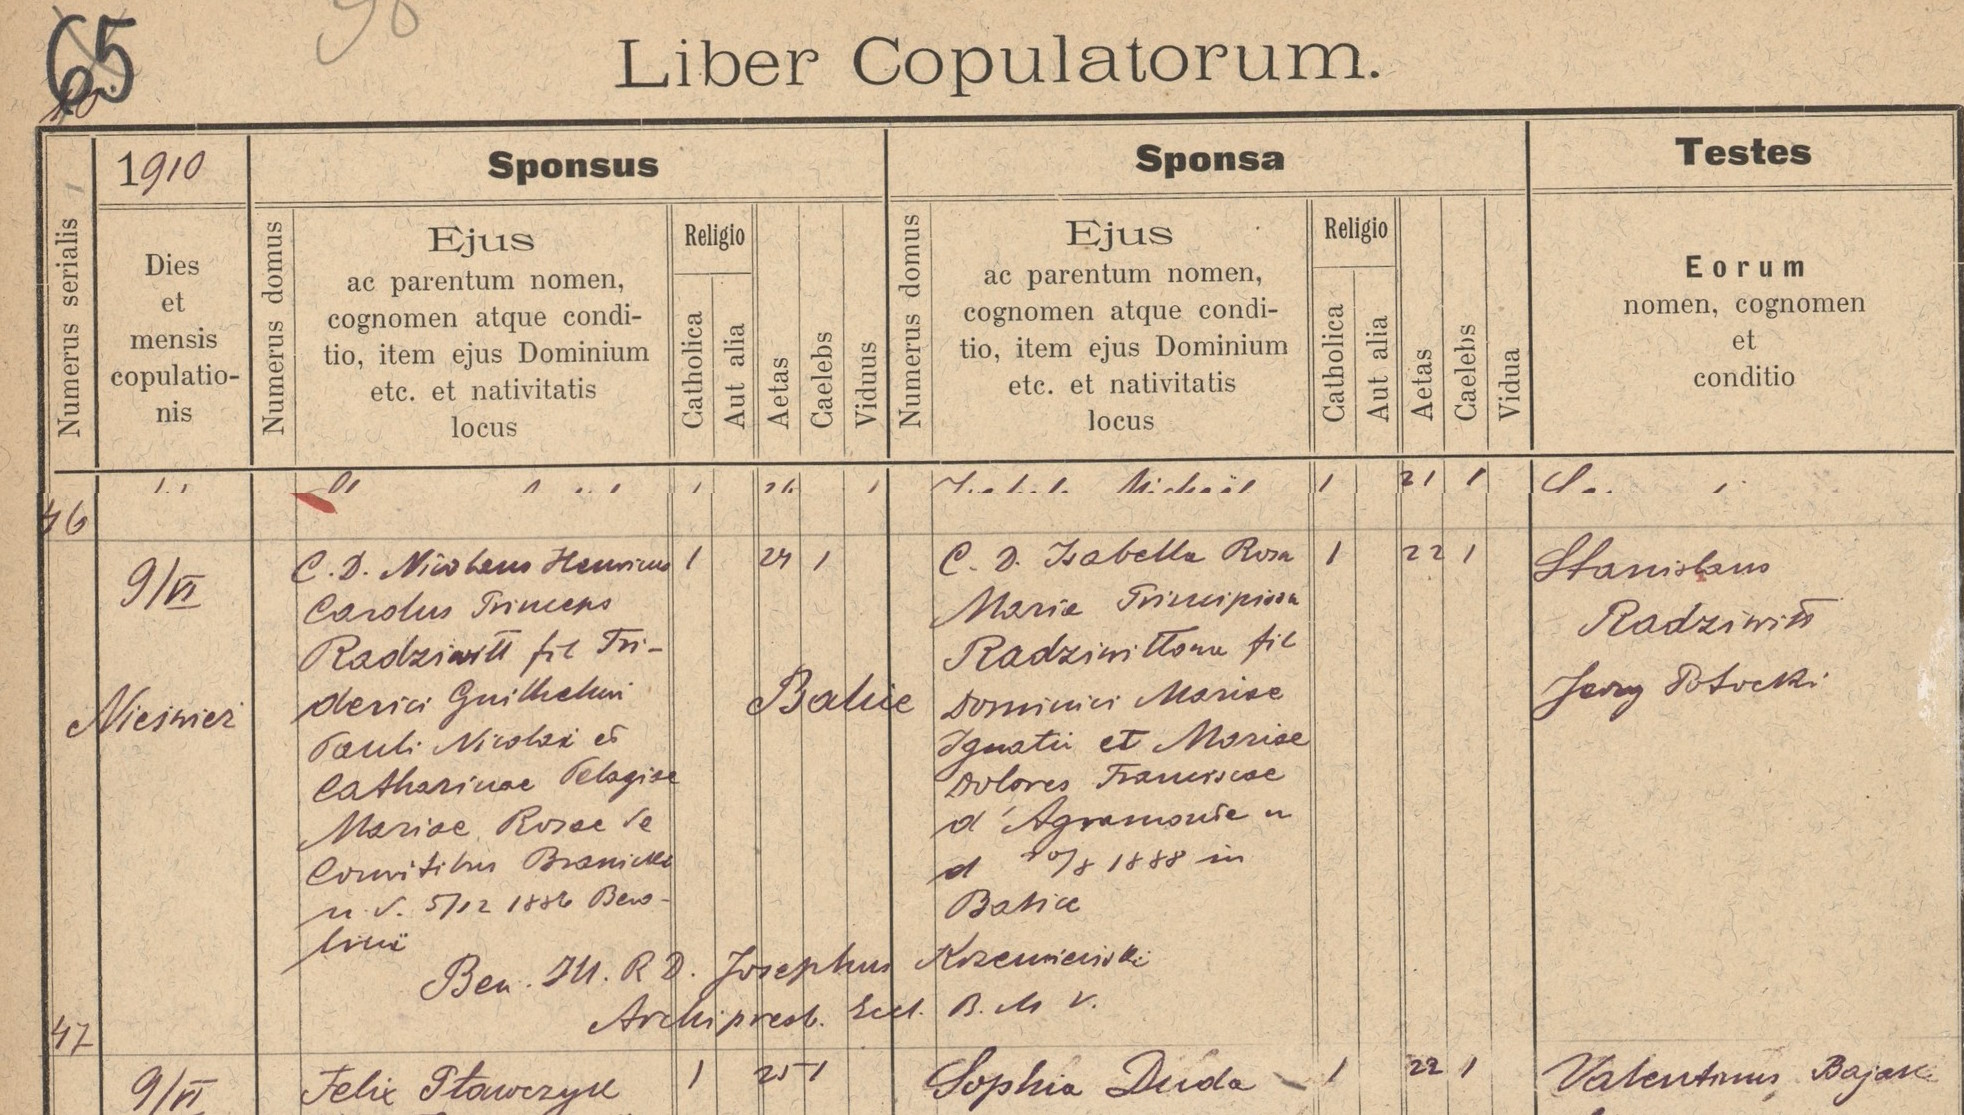 65
Liber Copulatorum.
1910
Sponsus
Sponsa
Testes
Numerus serialis
Dies
et
mensis
copulatio-
nis
Numerus domus
Ejus
ac parentum nomen,
cognomen atque condi-
tio, item ejus Dominium
etc. et nativitatis
locus
Religio
Catholica
Aut alia
Aetas
Caelebs
Viduus
Numerus domus
Ejus
ac parentum nomen,
cognomen atque condi-
tio, item ejus Dominium
etc. et nativitatis
locus
Religio
Catholica
Aut alia
Aetas
Caelebs
Vidua
Eorum
nomen, cognomen
et
conditio
1 21 1
46
9/VI
Nieśwież
C. D. Nicolaus Henricus
Carolus Princeps
Radziwiłł fil Fri-
derici Guilhelmi
Pauli Nicolai et
Catharinae Pelagiae
Mariae Rosae de
Comitibus Branicki
n. d. 5/12 1886 Bero-
linii
1 24 1
Balice
C. D. Isabella Rosa
Maria Principissa
Radziwiłłowa fil
Dominici Mariae
Ignatii et Mariae
Dolores Franciscae
d'Agramonte n
d /8 1888 in
Balice
1 22 1
Stanislaus
Radziwiłł
Jerzy Potocki
Ben. Ill. R D. Josephus Krzemieński
Archipresb. Eccl. B. M V.
47
9/VI
Felix Pławczyk
1 25 1
Sophia Duda
1 22 1
Valentinus